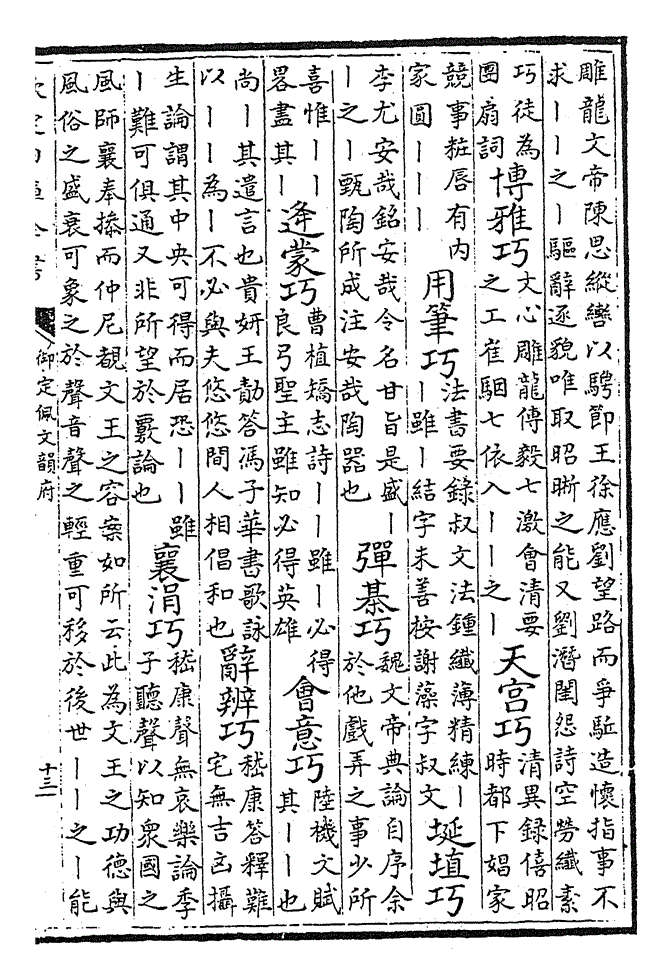 雕龍文帝陳思縱轡以騁節王徐應劉望路而爭駈造懷指事不
求丨丨之丨驅辭逐貌唯取昭晰之能又劉潛閨怨詩空勞纖素
巧徒為
團扇詞
博雅巧
文心雕龍傳毅七激會清要
之工崔駰七依入丨丨之丨
天宮巧
清異錄僖昭
時都下娼家
競事粧唇有内
家圓丨丨丨
用筆巧
法書要錄叔文法鍾纖薄精練丨
丨雖丨結字未善桉謝藻字叔文
埏埴巧
李尤安哉銘安哉令名甘旨是盛丨
丨之丨甄陶所成注安哉陶器也
彈棊巧
魏文帝典論自序余
於他戲弄之事少所
喜惟丨丨丨
畧盡其丨
逄蒙巧
曹植矯志詩丨丨雖丨必得
良弓聖主雖知必得英雄
會意巧
陸機文賦
其丨丨也
尚丨其遣言也貴妍王勣答馮子華書歌詠
以丨丨為丨不必與夫悠悠閒人相倡和也
辭辨巧
嵇康答釋難
宅無吉凶攝
生論謂其中央可得而居恐丨丨雖
丨難可俱通又非所望於覈論也
襄涓巧
嵇康聲無哀樂論季
子聽聲以知衆國之
風師襄奉搼而仲尼覩文王之容案如所云此為文王之功德與
風俗之盛衰可象之於聲音聲之輕重可移於後世丨丨之丨能
御定佩文韻府
十三